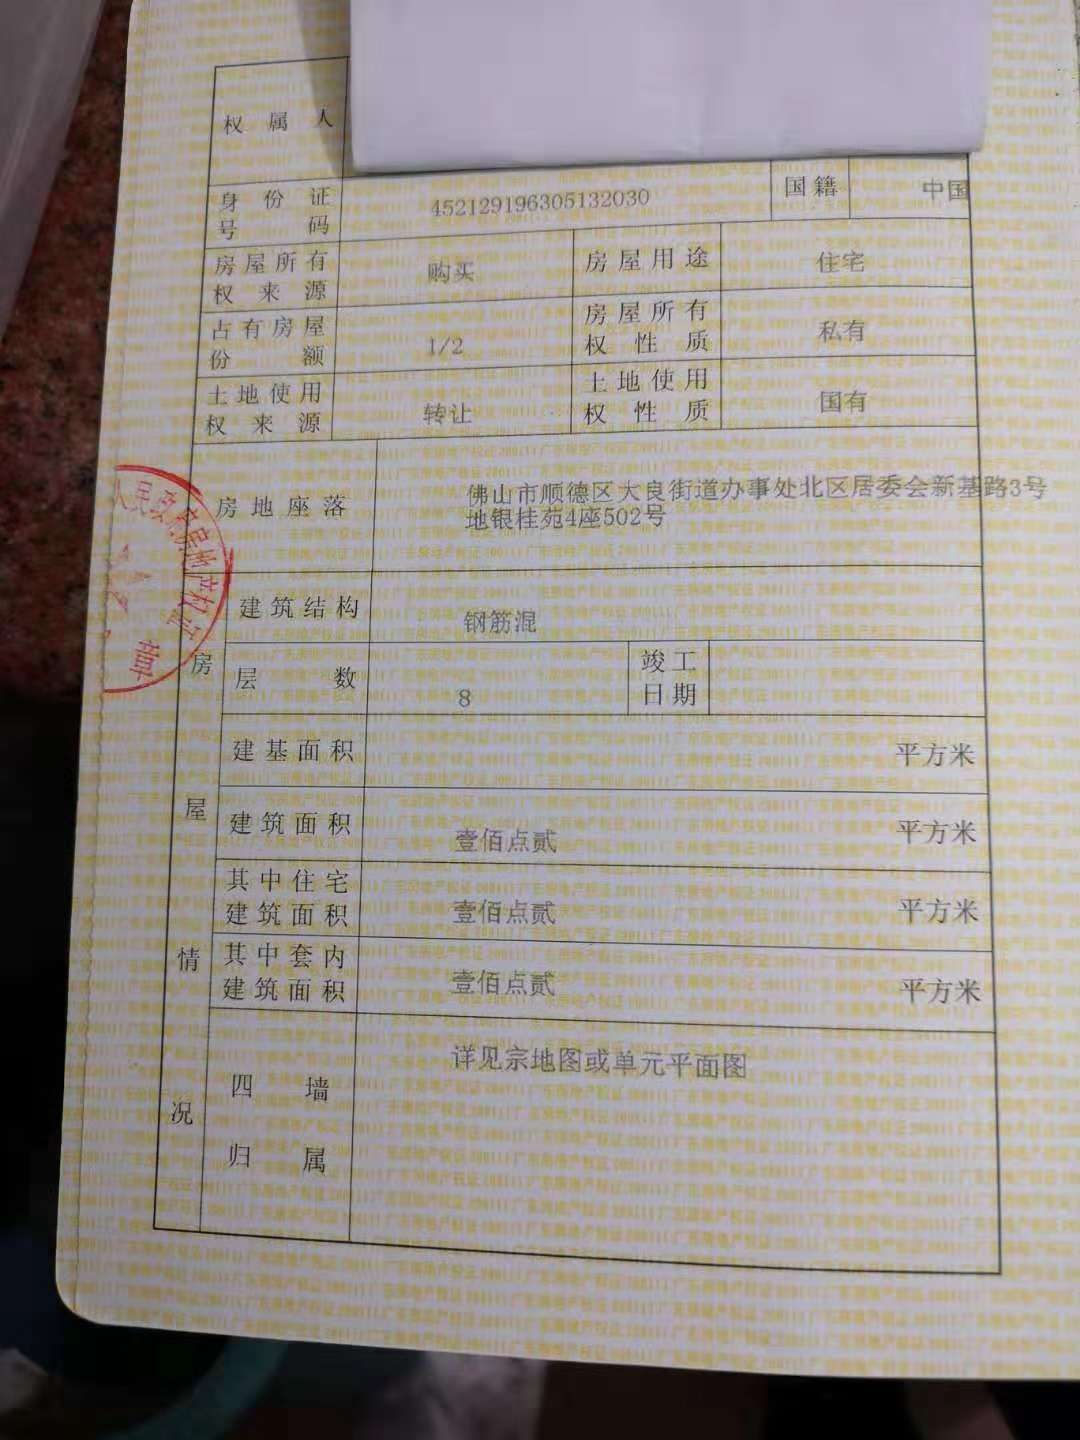 权属人
身份证号码 452129196305132030 国籍 中国
房屋所有权来源 购买 房屋用途 住宅
占有房屋份额 1/2 房屋所有权性质 私有
土地使用权来源 转让 土地使用权性质 国有
房地座落 佛山市顺德区大良街道办事处北区居委会新基路3号
地银桂苑4座502号
房屋情况
建筑结构 钢筋混
层数 8 竣工日期
建基面积 平方米
建筑面积 壹佰点贰 平方米
其中住宅建筑面积 壹佰点贰 平方米
其中套内建筑面积 壹佰点贰 平方米
四墙归属 详见宗地图或单元平面图